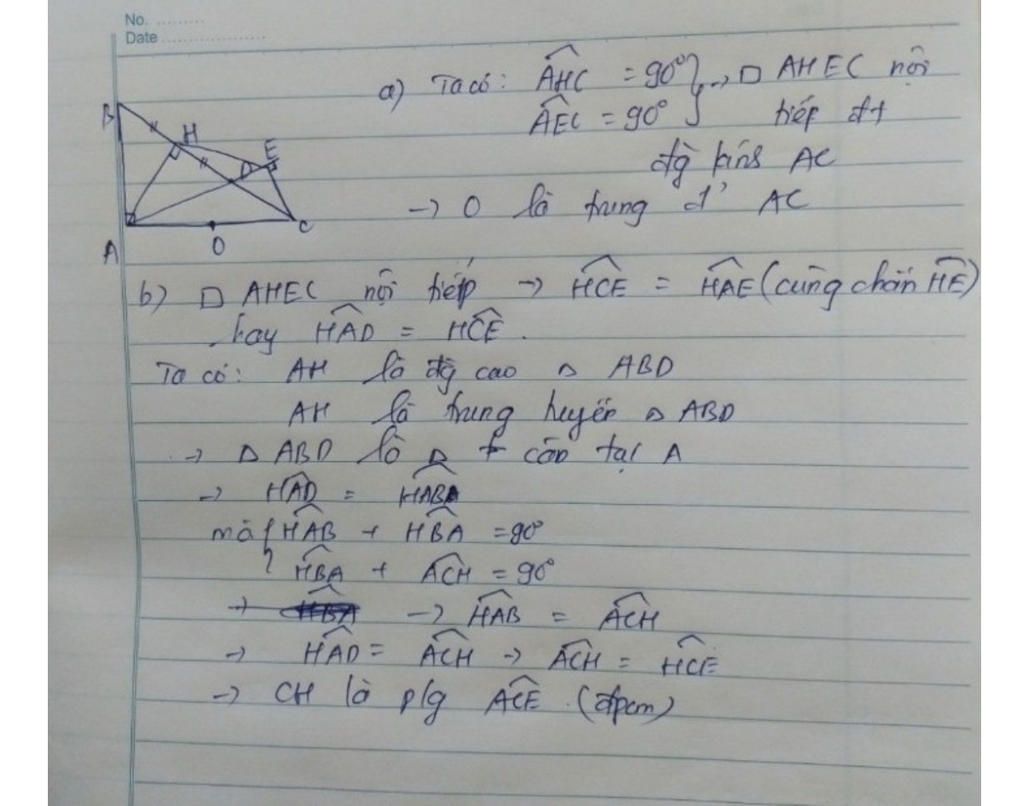 No. ..........
Date ......................
a) Ta có: AHC = 90° } → □ AHEC nội
AEC = 90° } tiếp đt
đg kính AC
→ O là trung đ' AC
B
H
E
D
A
O
C
b) □ AHEC nội tiếp → HCE = HAE (cùng chắn HE)
hay HAD = HCE.
Ta có: AH là đg cao △ ABD
AH là trung tuyến △ ABD
→ △ ABD là △ cân tại A
→ HAD = HAB
mà { HAB + HBA = 90°
HBA + ACH = 90°
→ HAB = ACH
→ HAD = ACH → ACH = HCE
→ CH là p/g ACE (đpcm)